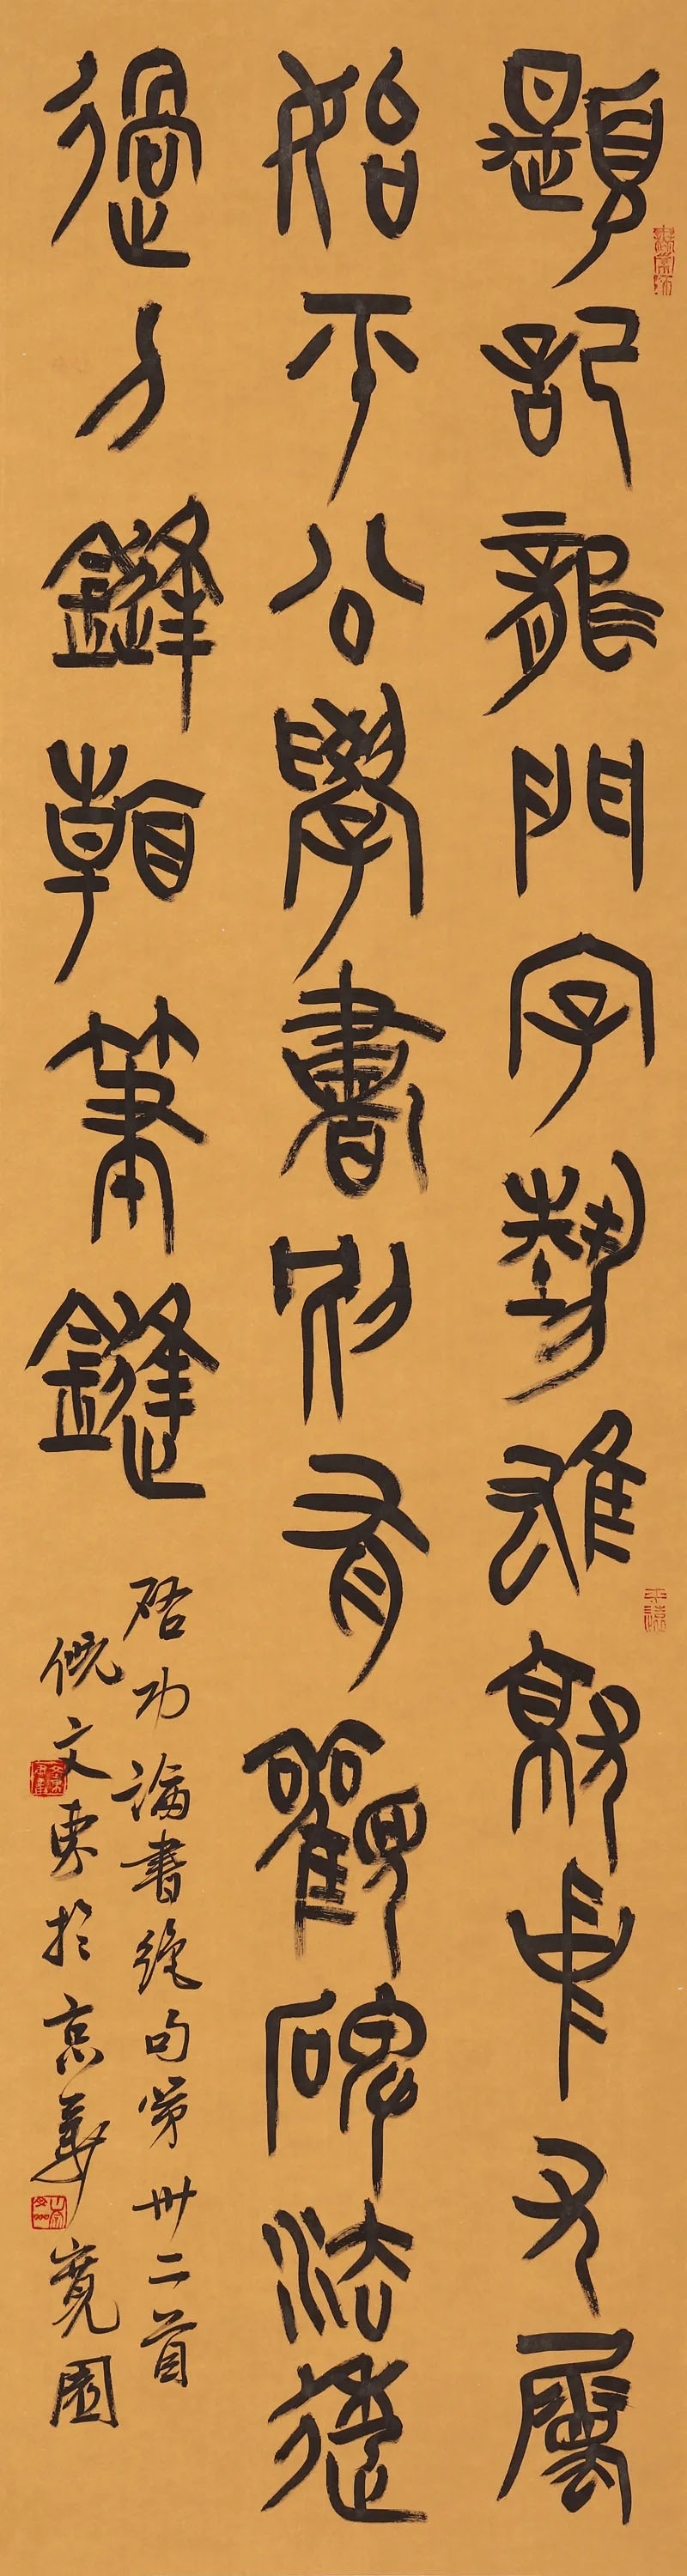 題記龍門字勢雄就中尤屬
始平公學書別有觀碑法透
過刀鋒看筆鋒
啓功論書絕句第卅二首
倪文東於京華寬園